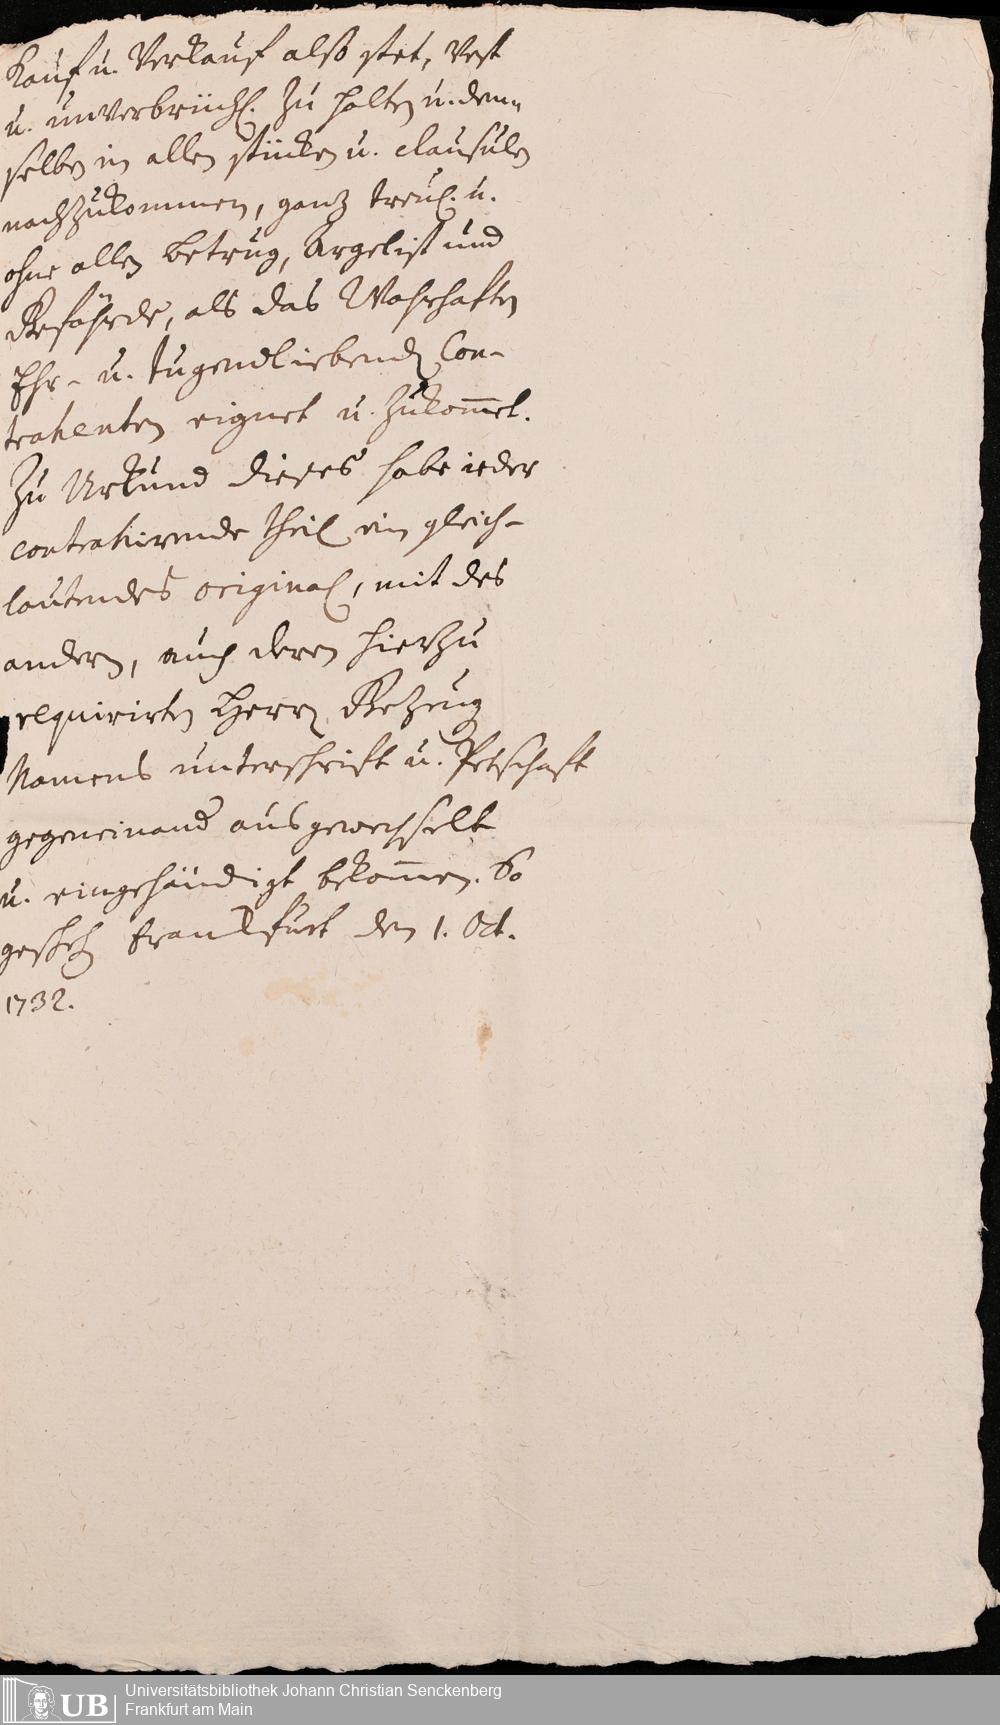 Kauf u. Verkauf alß stet, vest
u. unverbrüchl. zu halten u. dem-
selben in allen stücken u. clausulen
nachzukommen, ganz treul. u.
ohne allen betrug, Argelist und
Gefährde, als das Wahrhaften
Ehr- u. tugendliebend Con-
trahenten eignet u. zukommet.
Zu Urkund dieses habe ieder
contrahirende theil ein gleich-
lautendes original, mit des
andern, auch deren hierzu
requirirten Herrn Gezeug
Namens unterschrift u. Petschaft
gegeneinand ausgewechselt
u. eingehändigt bekom̄en. So
gescheh Franckfurt den 1. Oct.
1732.
UB
Universitätsbibliothek Johann Christian Senckenberg
Frankfurt am Main